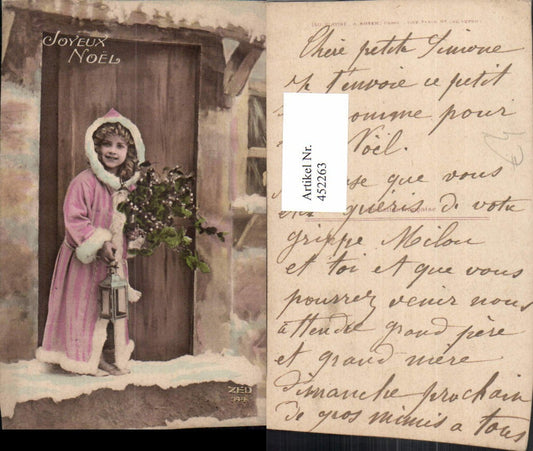 JOYEUX
NOËL
ZED
Chère petite Simone
t'envoie ce petit
homme pour
Noël.
que vous
guéris de votre
grippe Milou
et toi et que vous
pourrez venir nous
attendre grand père
et grand mère
Dimanche prochain
De gros mimis a tous
Artikel Nr.
452263